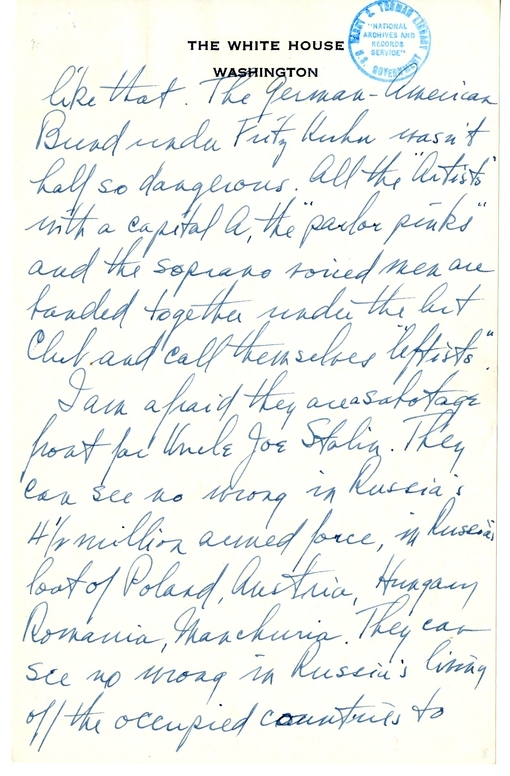 HARRY S. TRUMAN LIBRARY
"NATIONAL
ARCHIVES AND
RECORDS
SERVICE"
U.S. GOVERNMENT
THE WHITE HOUSE
WASHINGTON
like that. The German-American
Bund under Fritz Kuhn wasn't
half so dangerous. All the "Artists"
with a capital A, the "parlor pinks"
and the soprano voiced men are
banded together under the
Club and call themselves "leftists".
I am afraid they are a sabotage
front for Uncle Joe Stalin. They
can see no wrong in Russia's
4½ million armed force, in Russia's
loot of Poland, Austria, Hungary
Romania, Manchuria. They can
see no wrong in Russia's living
off the occupied countries to